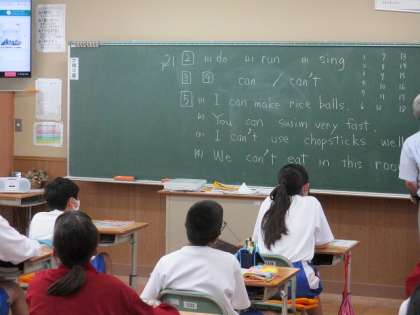 P21 [2] (1) do (2) run (3) sing
[3] [4] can / can't
[5] (1) I can make rice balls.
(2) You can swim very fast.
(3) I can't use chopsticks well
(4) We can't eat in this roo